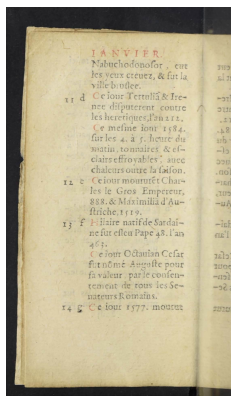 IANVIER
Nabuchodonosor, eut
les yeux creuez, & fut la
ville bruslee.
11 d Ce iour Tertulia & Ire-
nee disputerent contre
les heretiques, l'an 212.
Ce mesme iour 1584.
sur les 4. a 5. heure du
matin, tonnaires & es-
clairs effroyables auec
chaleurs outre la saison.
12 e Ce iour moururēt Char-
les le Gros Empereur,
888. & Maximiliā d'Au-
striche, 1519.
13 f Hilaire natif de Sardai-
ne fut esleu Pape 48. l'an
463.
Ce iour Octauian Cesar
fut nōmé Auguste pour
sa valeur par le consen-
tement de tous les Se-
nateurs Romains.
14 g Ce iour 1577. mourut